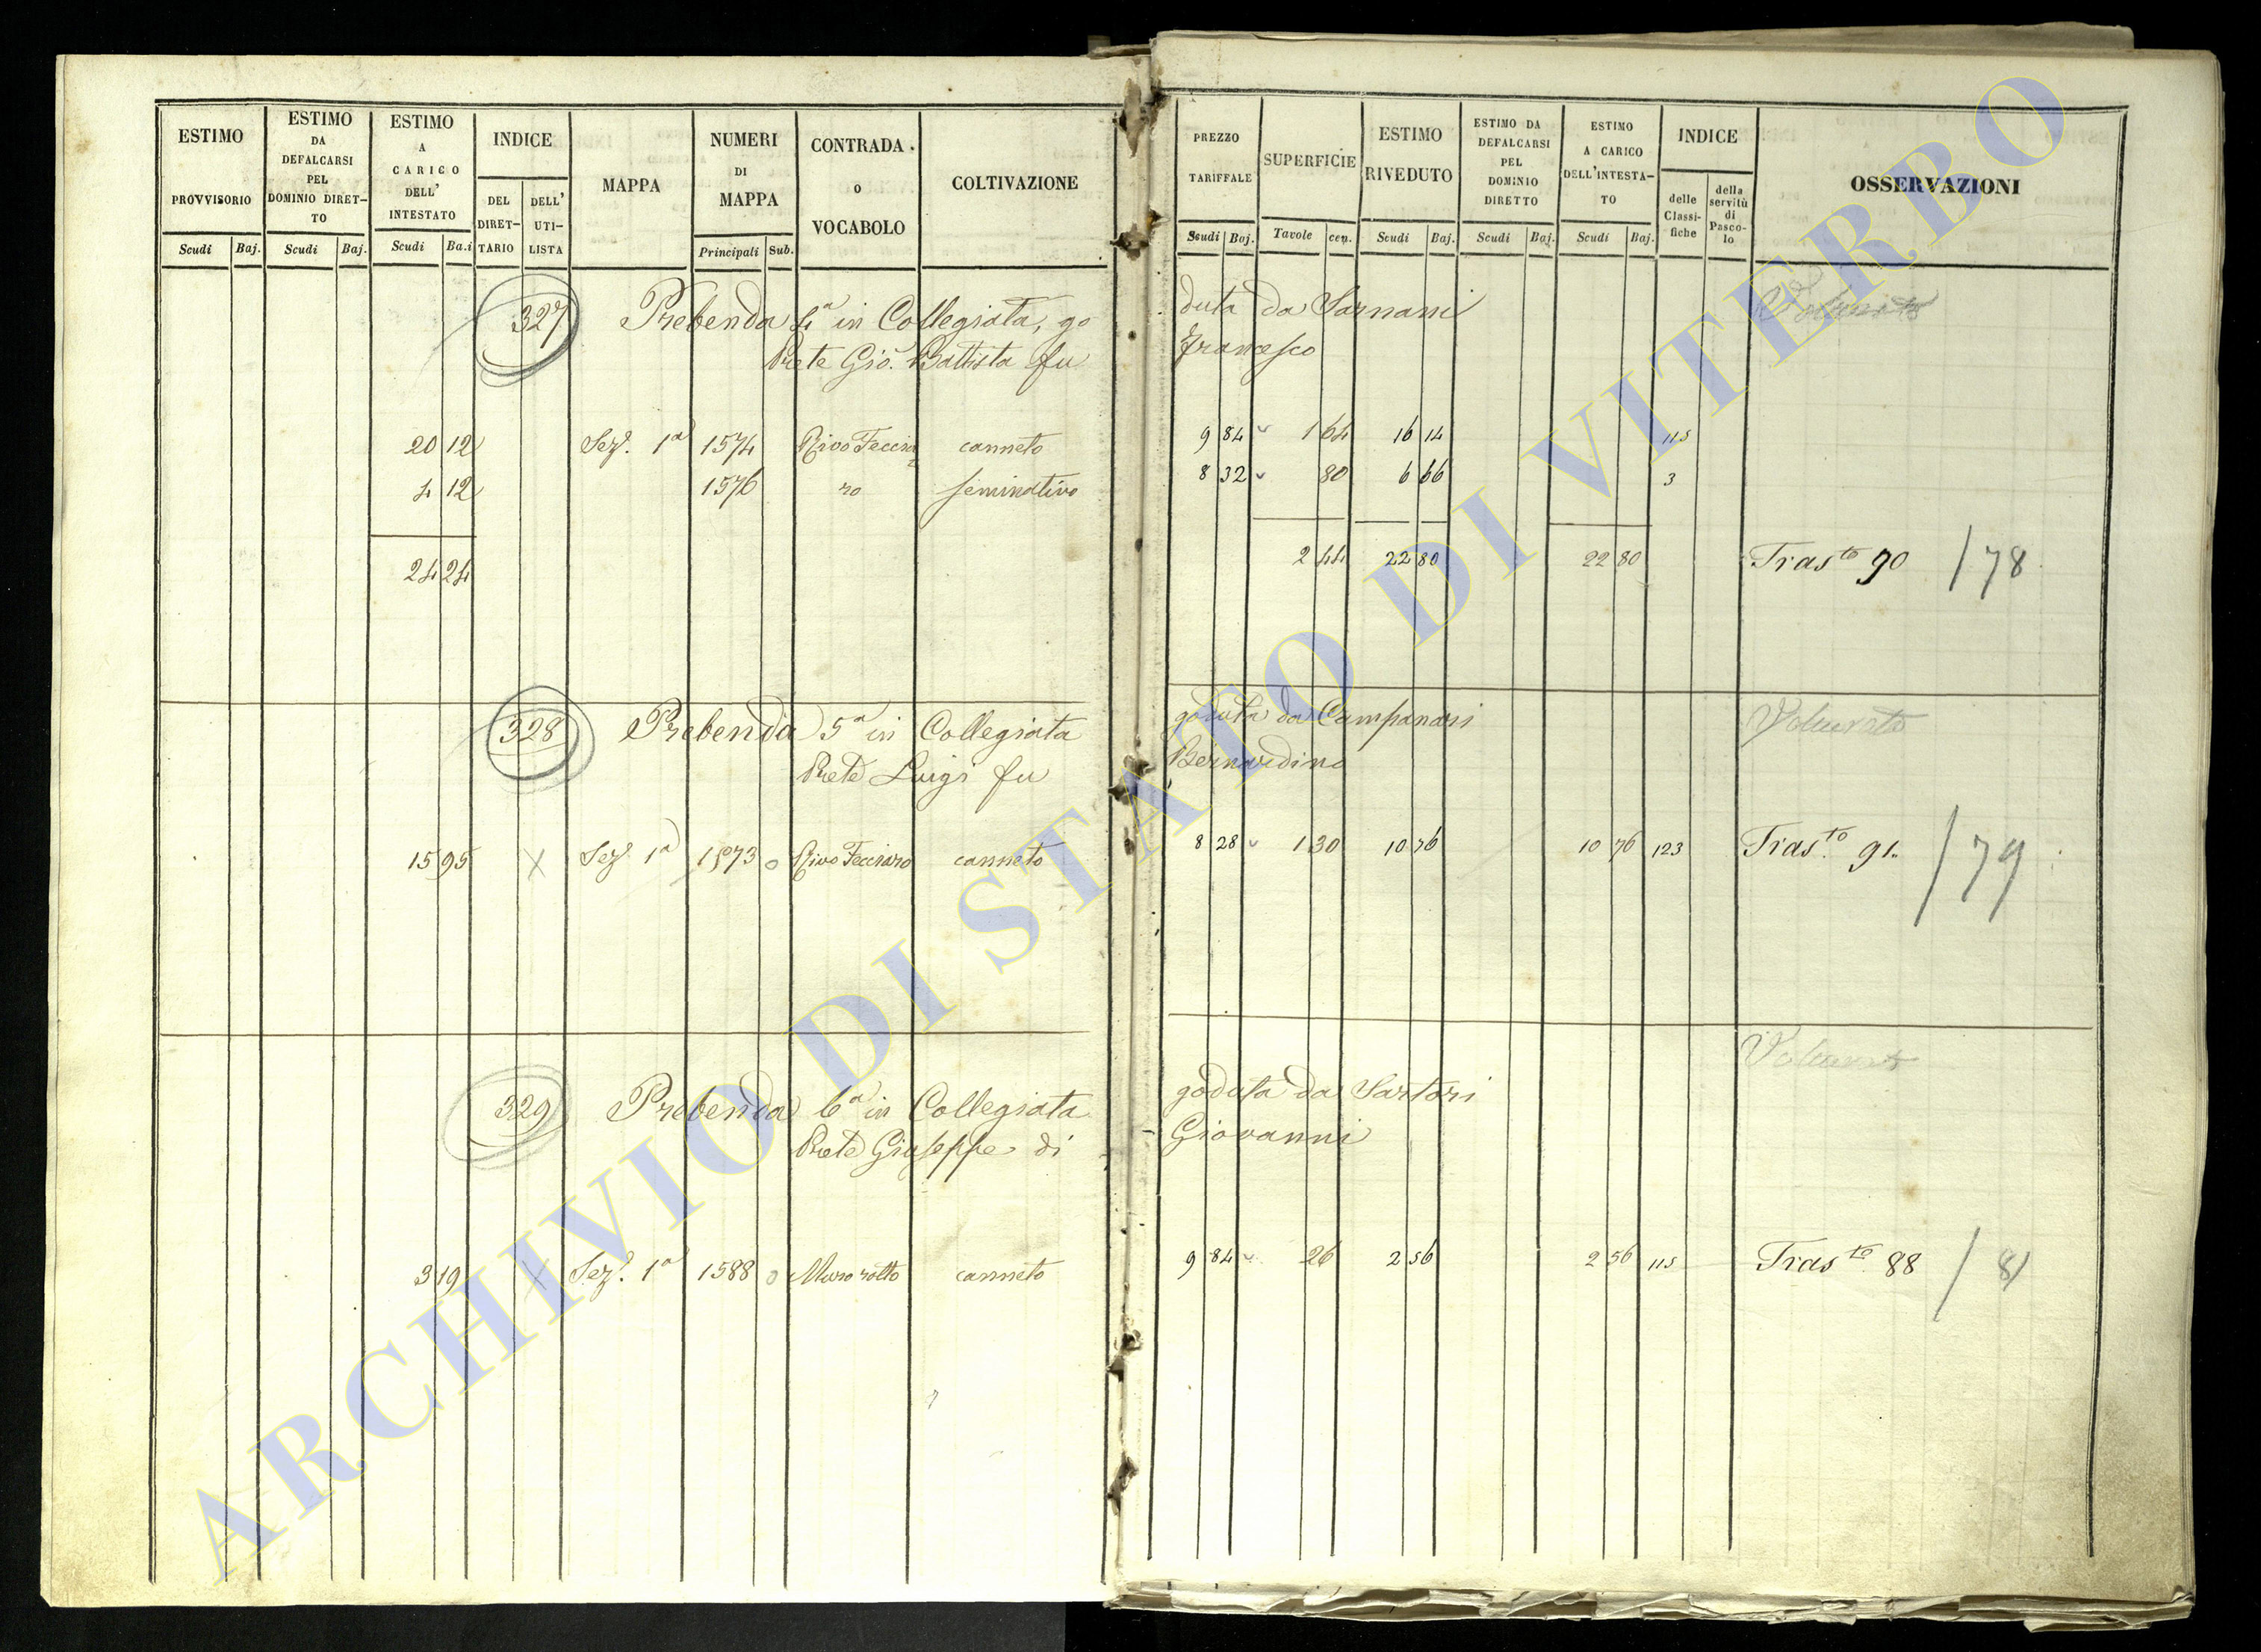 ESTIMO PROVVISORIO
Scudi Baj.
ESTIMO DA DEFALCARSI PEL DOMINIO DIRETTO
Scudi Baj.
ESTIMO A CARICO DELL' INTESTATO
Scudi Ba.i
INDICE
DEL DIRETTARIO
DELL' UTILISTA
MAPPA
NUMERI DI MAPPA
Principali Sub.
CONTRADA o VOCABOLO
COLTIVAZIONE
PREZZO TARIFFALE
Scudi Baj.
SUPERFICIE
Tavole cen.
ESTIMO RIVEDUTO
Scudi Baj.
ESTIMO DA DEFALCARSI PEL DOMINIO DIRETTO
Scudi Baj.
ESTIMO A CARICO DELL'INTESTATO
Scudi Baj.
INDICE
delle Classifiche
della servitù di Pascolo
OSSERVAZIONI
327 Prebenda 4a in Collegiata, goduta da
Prete Gio. Battista fu Francesco
20 12 Sez. 1a 1574 Rivo Fecciaro canneto 9 84 1 64 16 14 115
4 12 1576 ro seminativo 8 32 80 6 66 3
24 24 2 44 22 80 22 80 Trasto 90 / 78
328 Prebenda 5a in Collegiata goduta da Campanari Volturato
Prete Luigi fu Bernardino
15 95 X Sez. 1a 1573 o Rivo Fecciaro canneto 8 28 1 30 10 76 10 76 123 Trasto 91. / 79
329 Prebenda 6a in Collegiata goduta da Sartori
Prete Giuseppe di Giovanni
3 19 X Sez. 1a 1588 o Muro rotto canneto 9 84 26 2 56 2 56 115 Trasto 88 / 81
ARCHIVIO DI STATO DI VITERBO